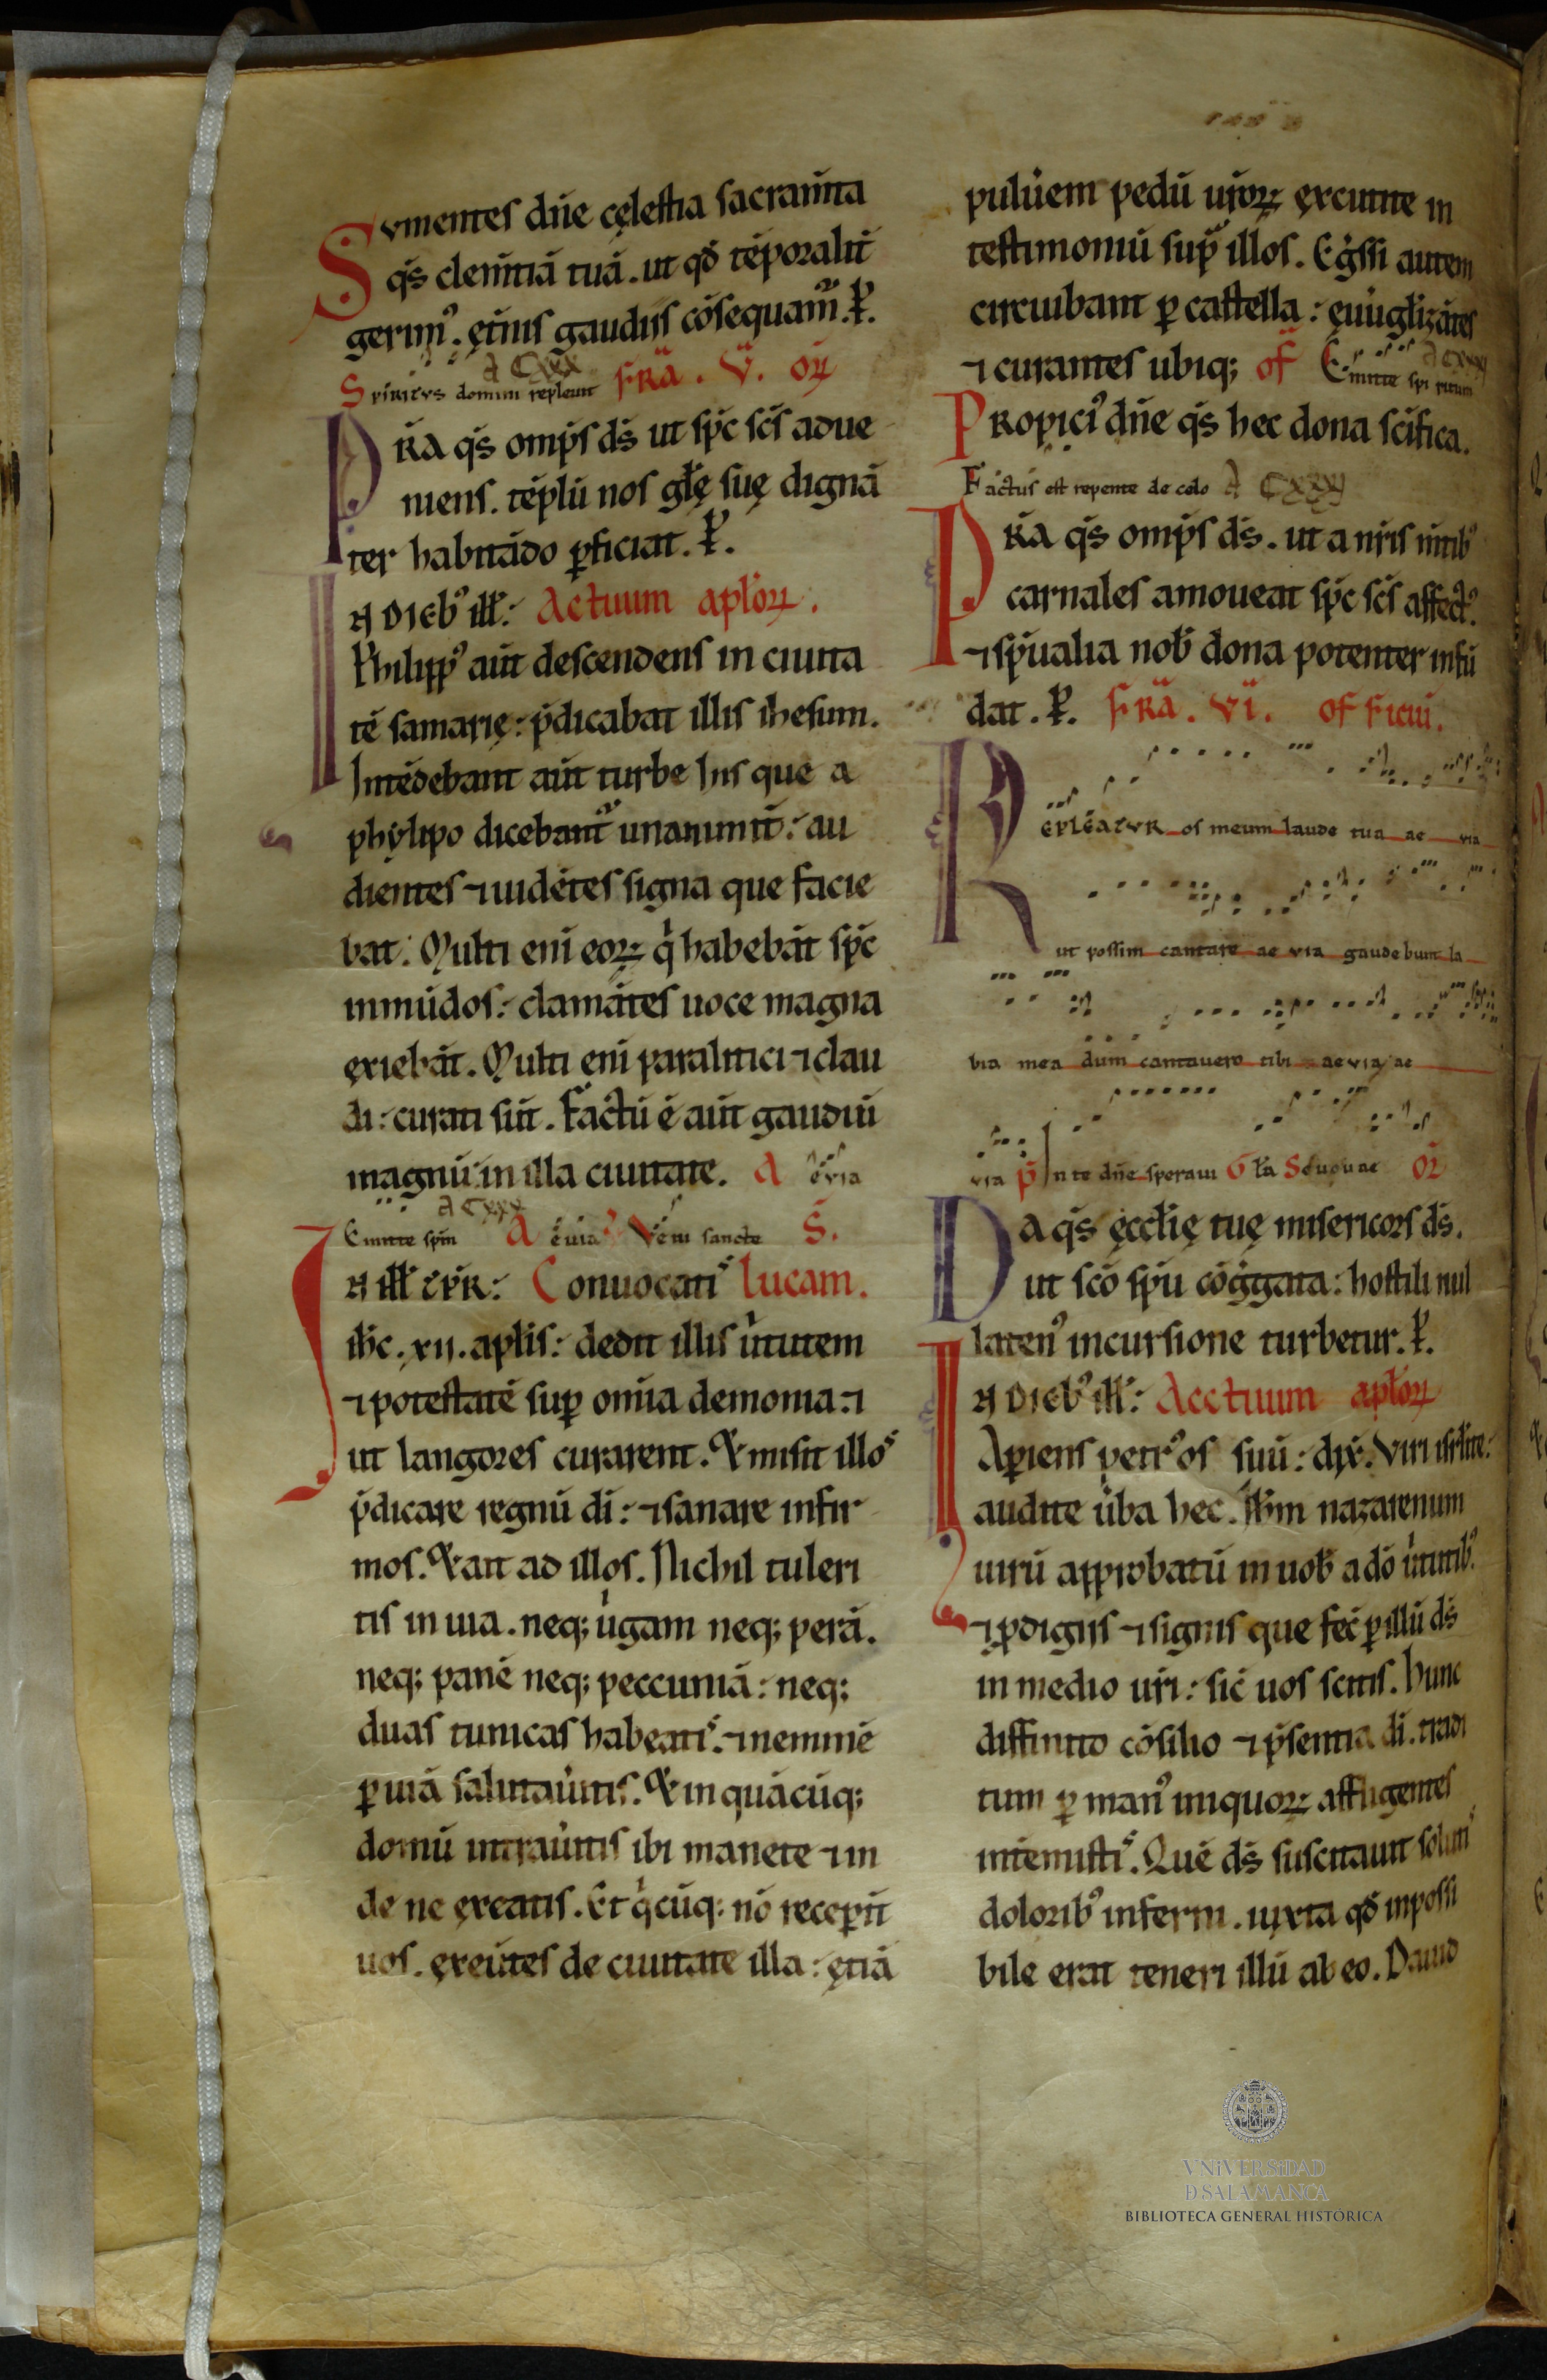 Svmentes dn̄e cęlestia sacram̄ta
q̄s clem̄tiā tuā. ut qđ tēporalit̄
gerim᷒. ęt̄nis gaudiis cōsequam̄. P̄.
A CXXX
Spiritvs domini repleuit FRĀ. V̄. OR̄
PR̄A q̄s omp̄s ds̄ ut sp̄c sc̄s adue
niens. tēplū nos gl̄ę suę dignā
ter habitādo ꝑficiat. P̄.
IN DIEB᷒ ill̄: Actuum apl̄oꝝ.
Philipp᷒ aūt descendens in ciuita
tē samarię: p̄dicabat illis ihesum.
Intēdebant aūt turbe his que a
phylipo dicebant᷑ unanimit̄: au
dientes ⁊ uidētes signa que facie
bat. Multi enī eoꝝ q̇ habebāt sp̄c
inmūdos: clamātes uoce magna
exiebāt. Multi enī paralitici ⁊ clau
di: curati sūt. Factū ē aūt gaudiū
magnū in illa ciuitate. A euia
A CXXX
Emitte sp̄m A euia V̄ Veni sancte S̄.
IN ill̄ TP̄R: Conuocatis Lucam.
ih̄c. xii. apl̄is: dedit illis ūtutem
⁊ potestatē suꝑ om̄ia demonia: ⁊
ut langores curarent. Et misit illos
p̄dicare regnū dī: ⁊ sanare infir
mos. Et ait ad illos. Nichil tuleri
tis in uia. neq; ūgam neq; perā.
neq; panē neq; peccuniā: neq;
duas tunicas habeatis. ⁊ neminē
ꝑ uiā salutaūitis. Et in quācūq;
domū intraūitis ibi manete ⁊ in
de ne exeatis. Et q̇cūq; nō receꝑīt
uos. exeūtes de ciuitate illa: ętiā
pulūem pedū ūroꝝ excutite in
testimoniū sup̄ illos. Eḡssi autem
circuibant ꝑ castella: euūgl̄izātes
⁊ curantes ubiq; of Emitte spiritum A CXXX
Propici᷒ dn̄e q̄s hec dona sc̄ifica.
Factus est repente de celo A CXXXI
PR̄A q̄s omp̄s ds̄. ut a nr̄is m̄tib᷒
carnales amoueat sp̄c sc̄s affect᷒.
⁊ sp̄ualia nob̄ dona potenter infū
dat. P̄. FRĀ. VĪ. officiū.
Repleatvr os meum laude tua ae via
ut possim cantare ae via gaudebunt la
bia mea dum cantauero tibi ae via ae
via p̄ In te dn̄e speraui Gl̄a Seuouae OR̄
Da q̄s ęccl̄ię tuę misericors ds̄.
ut sc̄o sp̄u cōḡgata: hostili nul
laten᷒ incursione turbetur. P̄.
IN DIEB᷒ ill̄: Acctuum apl̄oꝝ
Aꝑiens petr᷒ os suū: dix̄. Viri isrl̄ite:
audite ūba hec. Ih̄m nazarenum
uirū approbatū in uob̄ a dō ūtutib᷒.
⁊ ꝓdigiis ⁊ signis que fec̄ ꝑ illū ds̄
in medio ūri: sic̄ uos scitis. hunc
diffinito cōsilio ⁊ p̄sentia dī. tradi
tum ꝑ man᷒ iniquoꝝ affligentes
intēmistis. Quē ds̄ suscitauit solutis
dolorib᷒ inferni. iuxta qđ inpossi
bile erat teneri illū ab eo. Dauid
VNiVERSiDAD
D SALAMANCA
BIBLIOTECA GENERAL HISTÓRICA